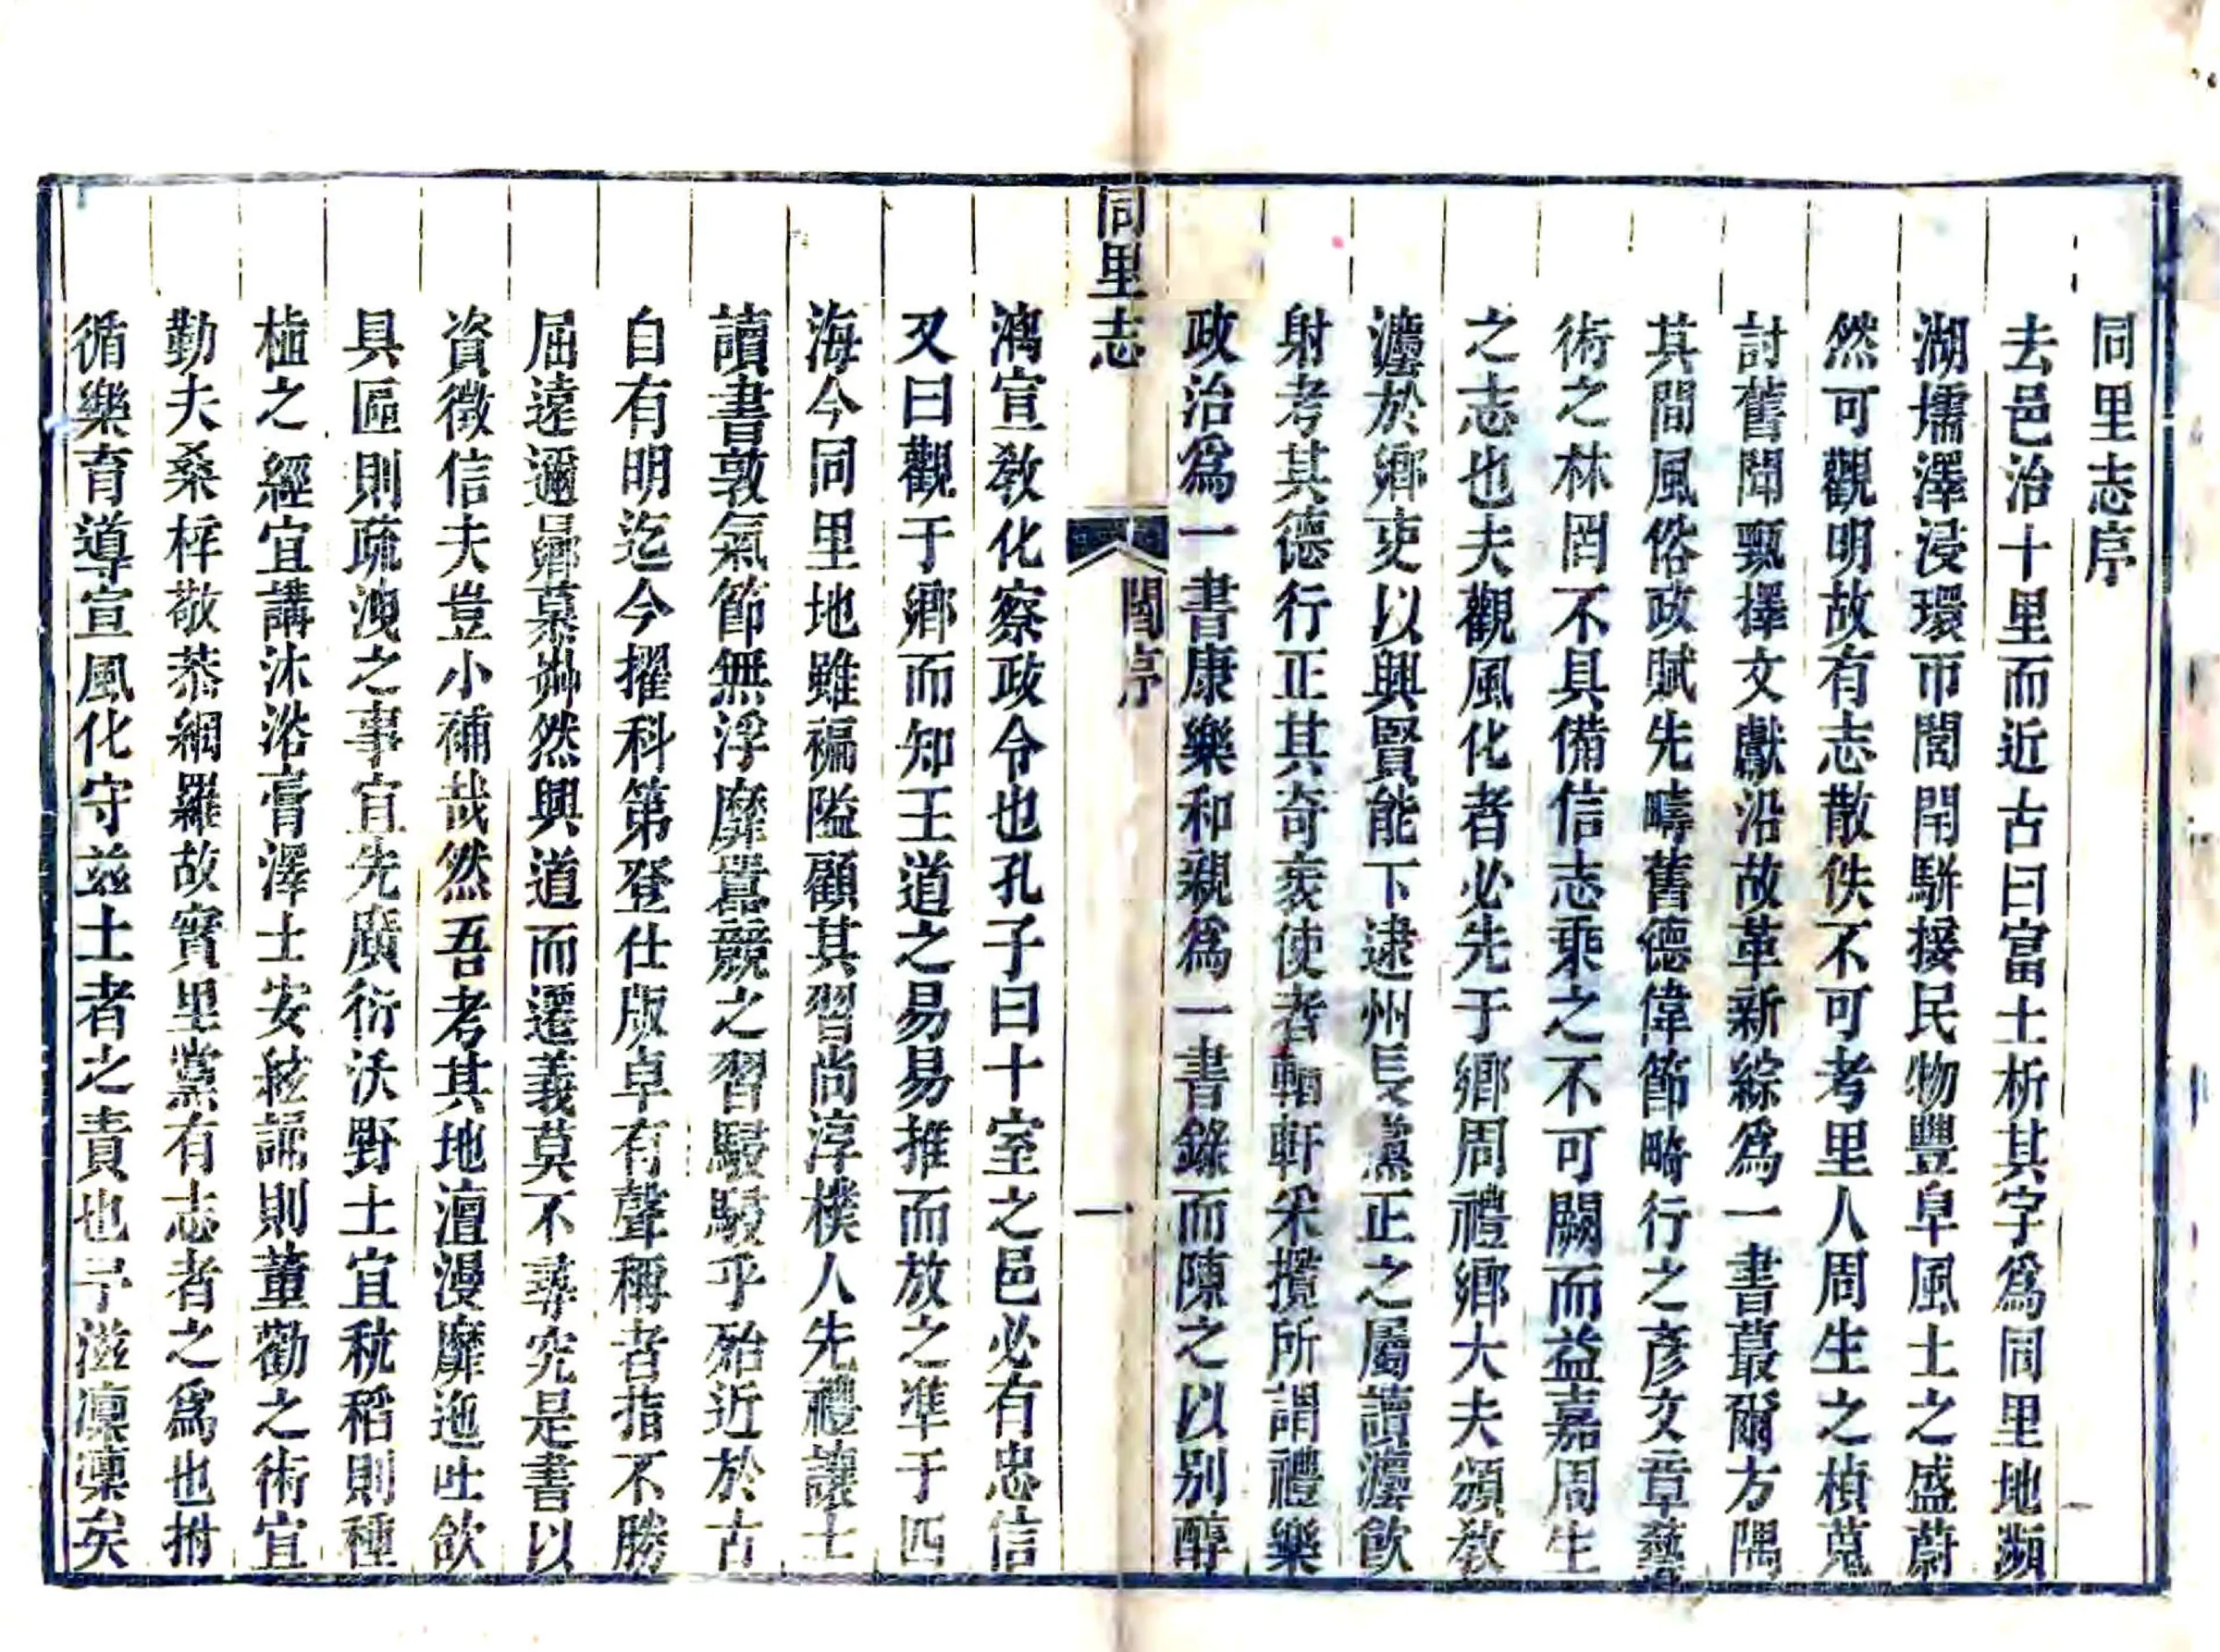 同里志序
去邑治十里而近古曰富土析其字爲同里地瀕
湖壖澤浸環帀閭閈駢接民物豐阜風土之盛蔚
然可觀明故有志散佚不可考里人周生之楨蒐
討舊聞甄擇文獻沿故革新綜爲一書蕞爾方隅
其間風俗政賦先疇舊德偉節畸行之彥文章藝
術之林罔不具備信志乘之不可闕而益嘉周生
之志也夫觀風化者必先于鄉周禮鄉大夫頒敎
灋於鄉吏以興賢能下逮州長黨正之屬讀灋飮
射考其德行正其奇衺使者輶軒采攬所謂禮樂
政治爲一書康樂和親爲一書錄而陳之以别醇
同里志
閻序
一
漓宣敎化察政令也孔子曰十室之邑必有忠信
又曰觀于鄉而知王道之易易推而放之準于四
海今同里地雖褊隘顧其習尚淳樸人先禮讓士
讀書敦氣節無浮靡囂競之習駸駸乎殆近於古
自有明迄今擢科第登仕版卓有聲稱者指不勝
屈遠邇曏慕怞然興道而遷義莫不尋究是書以
資徵信夫豈小補哉然吾考其地澶漫靡迤吐欱
具區則疏洩之事宜先廣衍沃野土宜秔稻則種
植之經宜講沐浴膏澤士安絃誦則董勸之術宜
勤夫桑梓敬恭網羅故實里黨有志者之爲也拊
循樂育導宣風化守兹土者之責也予滋凛凛矣